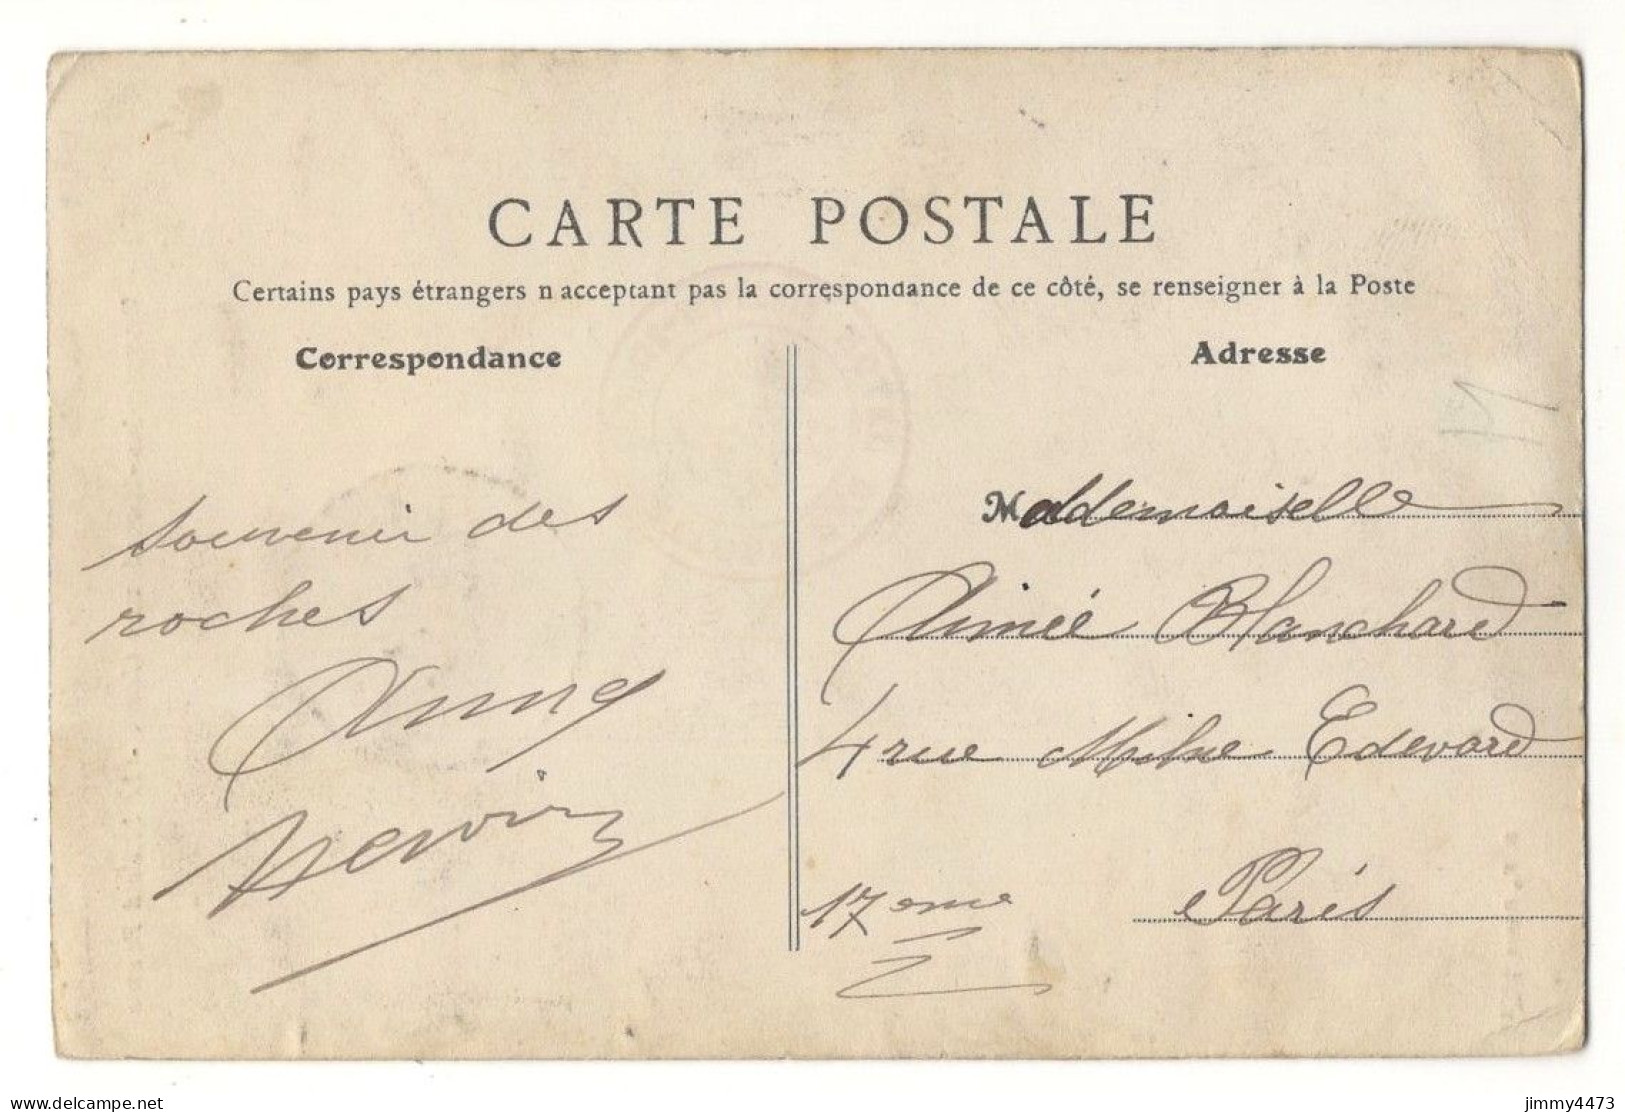 CARTE POSTALE
Certains pays étrangers n'acceptant pas la correspondance de ce côté, se renseigner à la Poste
Correspondance
Adresse
souvenir des
roches
Mademoiselle
Aimée Blanchard
4 rue Milne Edward
17eme Paris
www.delcampe.net
jimmy4473